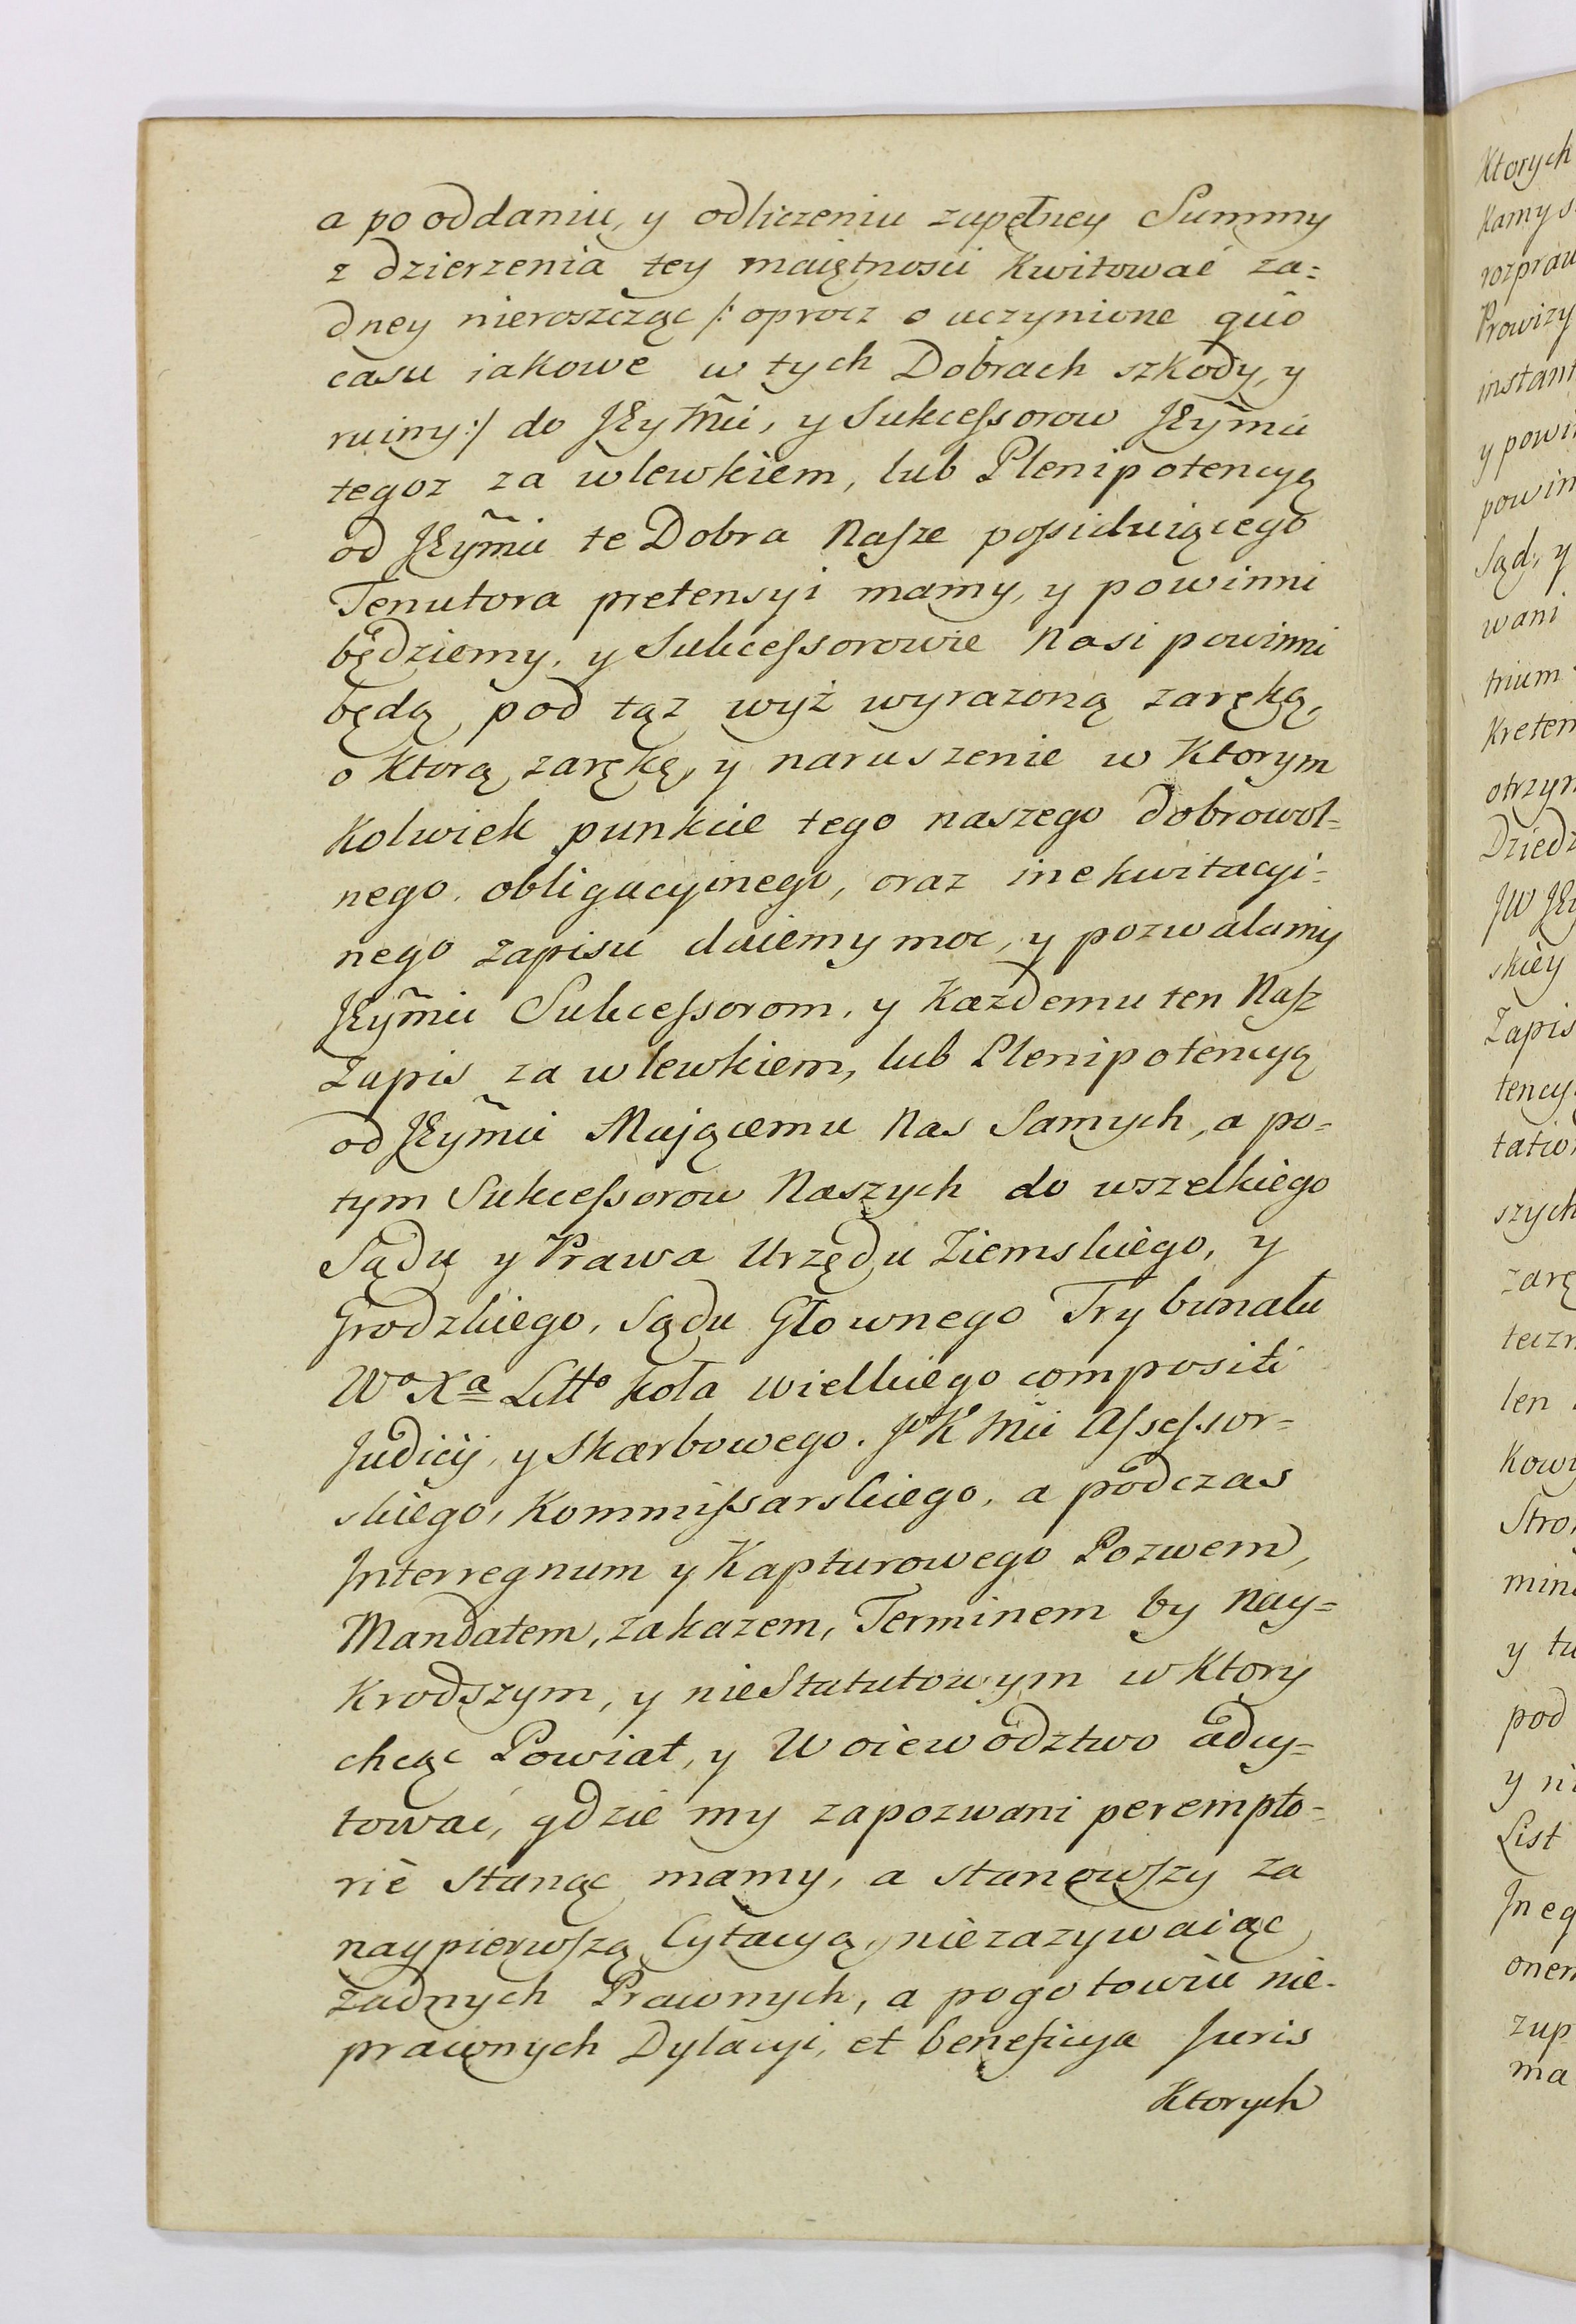 a po oddaniu, y odliczeniu zupełney Summy
z dzierzenia tey maiętnosci kwitować za=
dney nieroszcząc /: oprocz o uczynione quo
casu iakowe w tych Dobrach szkody, y
ruiny :/ do JEy Mci, y Sukcessorow JEymci
tegoz za wlewkiem, lub Plenipotencyą
od JEymci te Dobra Nasze possiduiącego
Tenutora pretensyi mamy, y powinni
będziemy, y Sukcessorowie Nasi powinni
będą, pod tąz wyż wyrazoną zaręką,
o ktorą zarękę, y naruszenie w Ktorym
Kolwiek punkcie tego naszego dobrowol=
nego obligacyinego, oraz inekwitacyi=
nego zapisu daiemy moc, y pozwalamy
JEymci Sukcessorom, y Kazdemu ten Nasz
Zapis za wlewkiem, lub Plenipotencyą
od JEymci Mającemu Nas Samych, a po=
tym Sukcessorow Naszych do wszelkiego
Sądu y Prawa Urzędu Ziemskiego, y
Grodzkiego, Sądu Głownego Trybunału
Wo Xa Litto koła wielkiego compositi
Judicij, y Skarbowego. JoK Mci Assessor=
skiego, Kommissarskiego, a podczas
Interregnum y Kapturowego Pozwem,
Mandatem, zakazem, Terminem by Nay=
krodszym, y nieStatutowym w Ktory
chcąc Powiat, y Woiewodztwo adcy=
tować, gdzie my zapozwani perempto=
riè stanąc mamy, a stanowszy za
naypierwszą Cytacyą, niezazywaiąc
żadnych Prawnych, a pogotowiu nie=
prawnych Dylacyi, et beneficya Juris
Ktorych
Ktorych
Kamy s
rozpraw
Prowizy
instant
y powi
powin
Sąd, y
wani
trium
Kreten
otrzym
Dziedz
JW JEy
skiey
Zapis
tency
tatio
szych
zarę
teczn
len
Kowy
Stro
min
y tu
pod
y ni
List
Ineq
onen
zup
ma